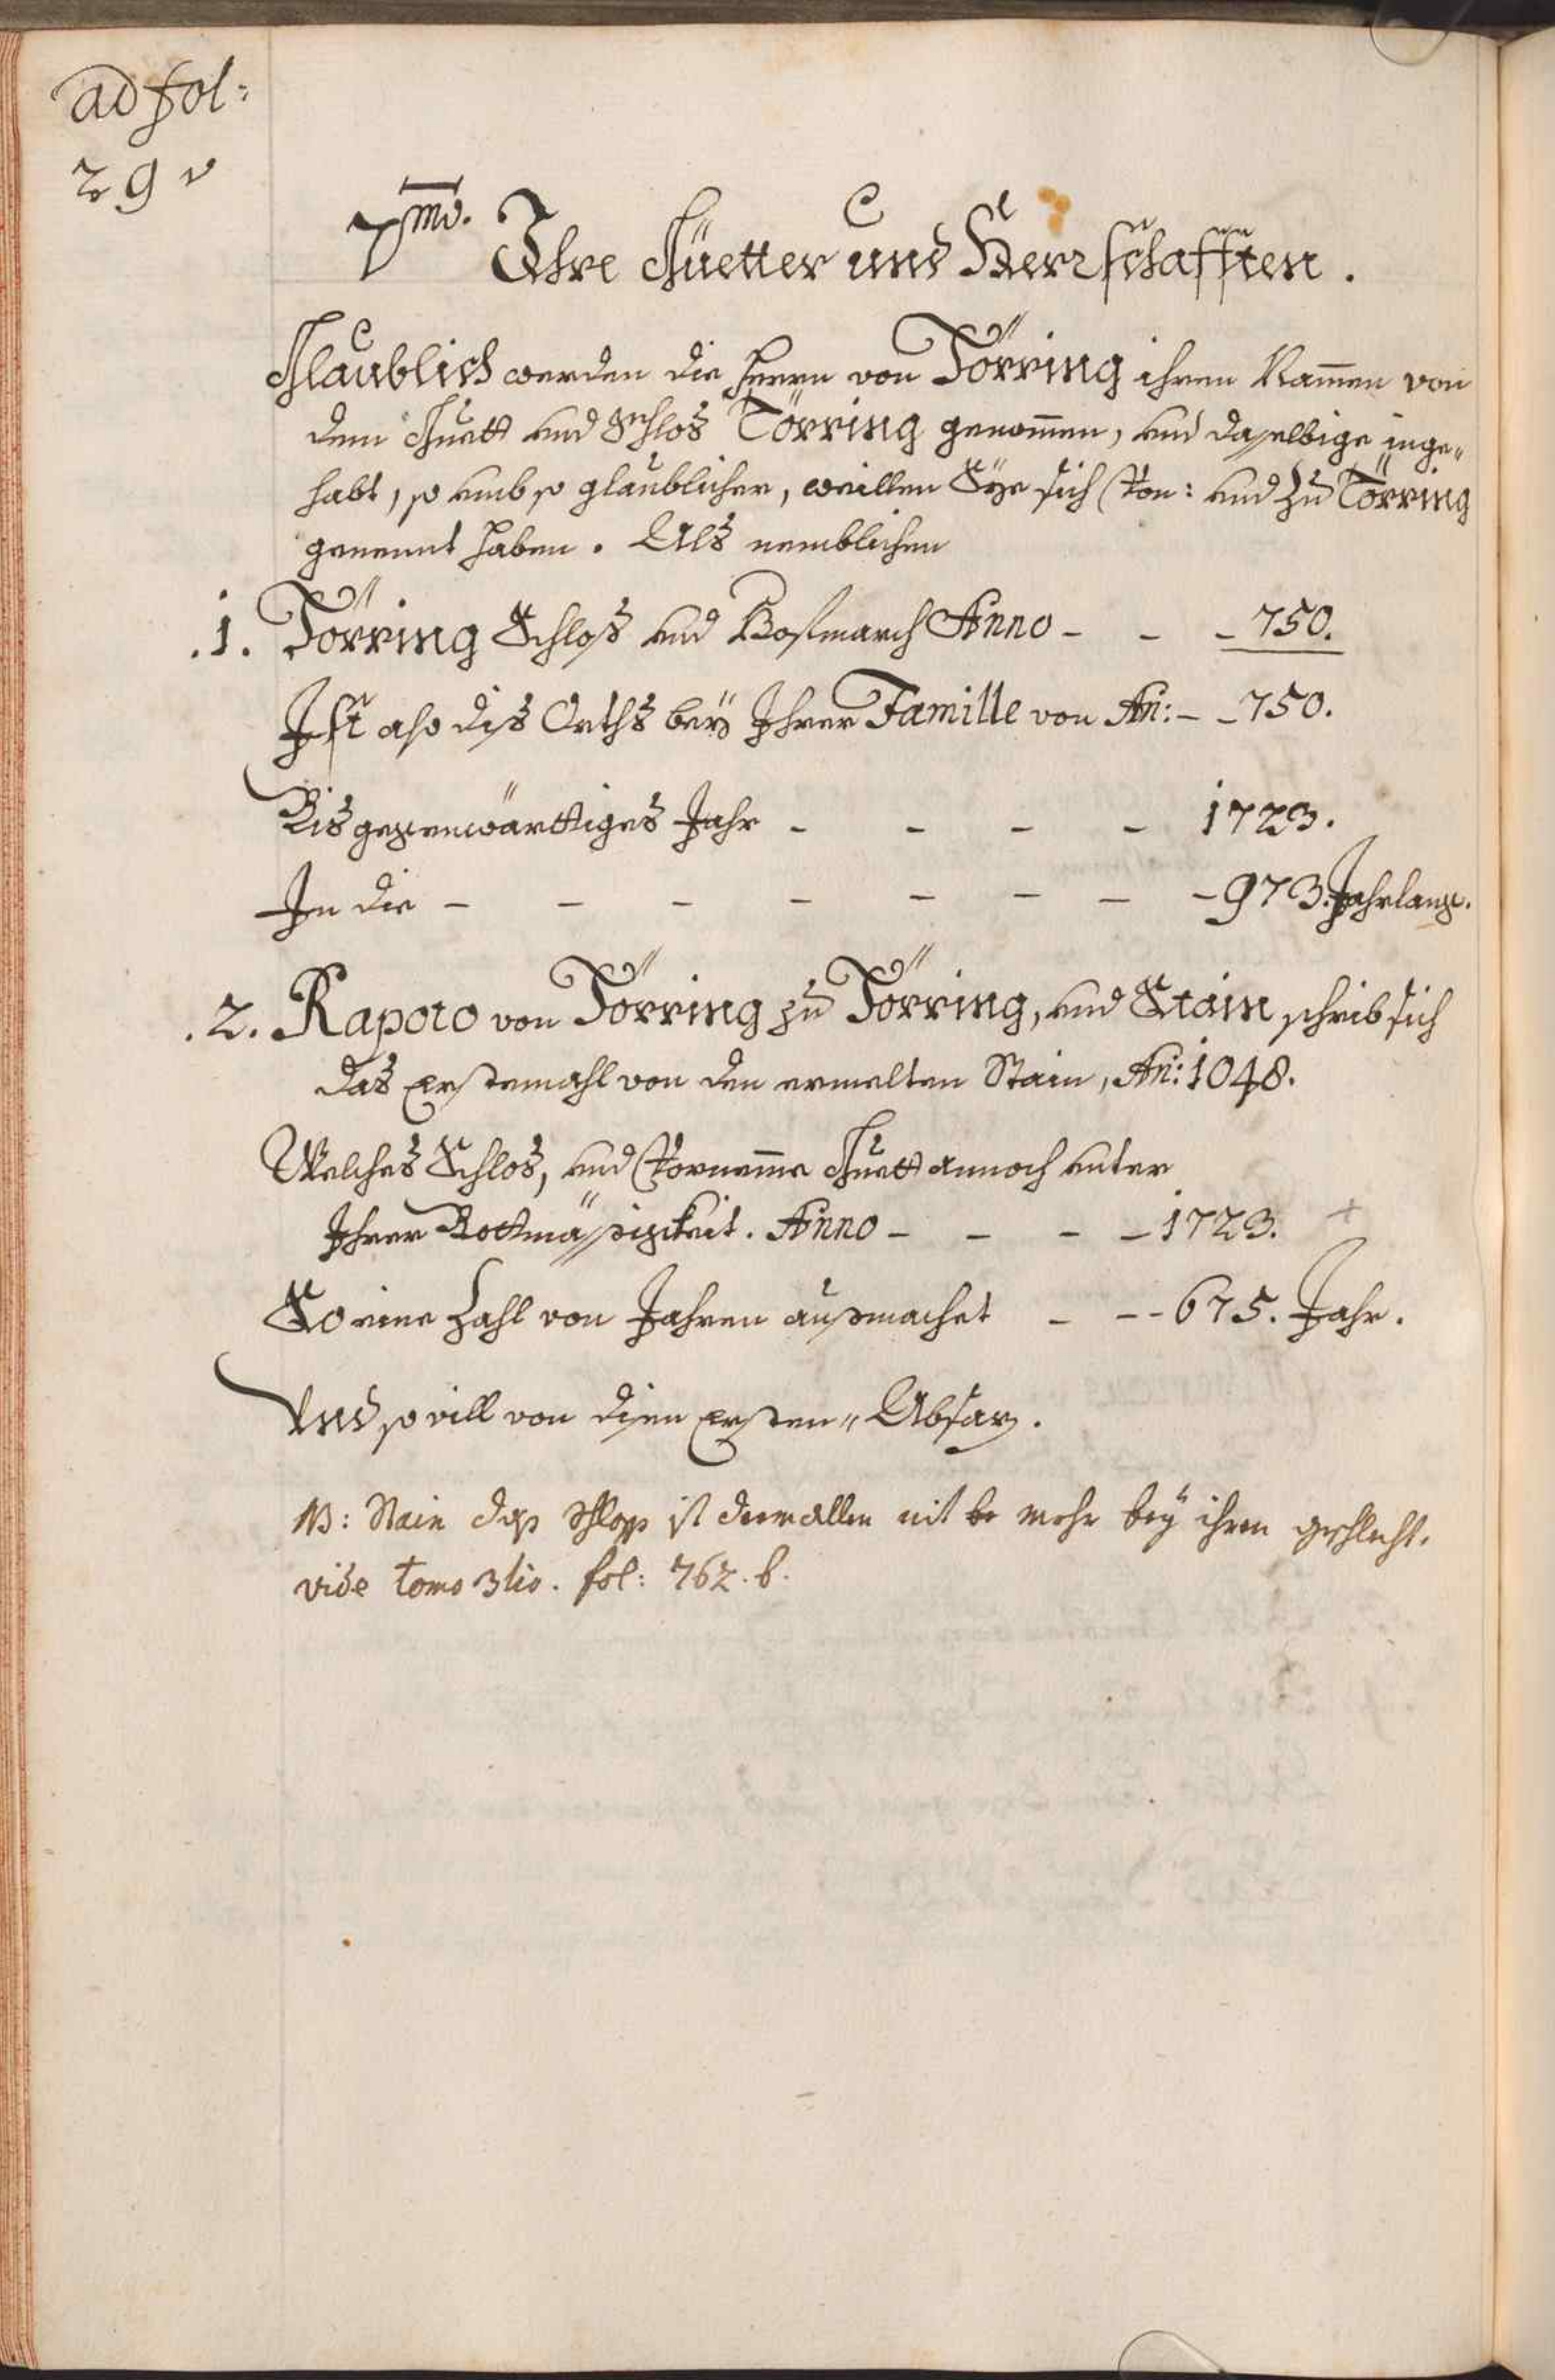 ad fol:
29 v
7mo. Ihre Güetter und Herrschafften.
Glaublich werden die Herrn von Törring ihren Nam̄en von
dem Guett und Schlos Törring genom̄en, und daselbige inge„
habt, so umb so glaublicher, weillen Sye sich Von: und zu Törring
genennt haben. Als nemblichen
.1. Törring Schloß und Hofmarch Anno - - - 750.
Ist also diß Orths bey Ihrer Famille von An: - - 750.
Bis gegenwärttiges Jahr - - - - 1723.
In die - - - - - - - - 973. Jahr lang.
.2. Rapoto von Törring zu Törring, und Stain schrib sich
das Erstemahl von den ermelten Stain, An: 1048.
Welches Schlos, und Vornem̄e Guett annoch unter
Ihrer Bottmässigkeit. Anno - - - - 1723. +
So eine Zahl von Jahren außmachet - - - 675. Jahr.
Und so vill von disen Ersten„ Absaz.
NB: Stain das schloss ist dermallen nit be mehr bey ihren geschlecht.
vide tomo 3tio. fol: 762. b.